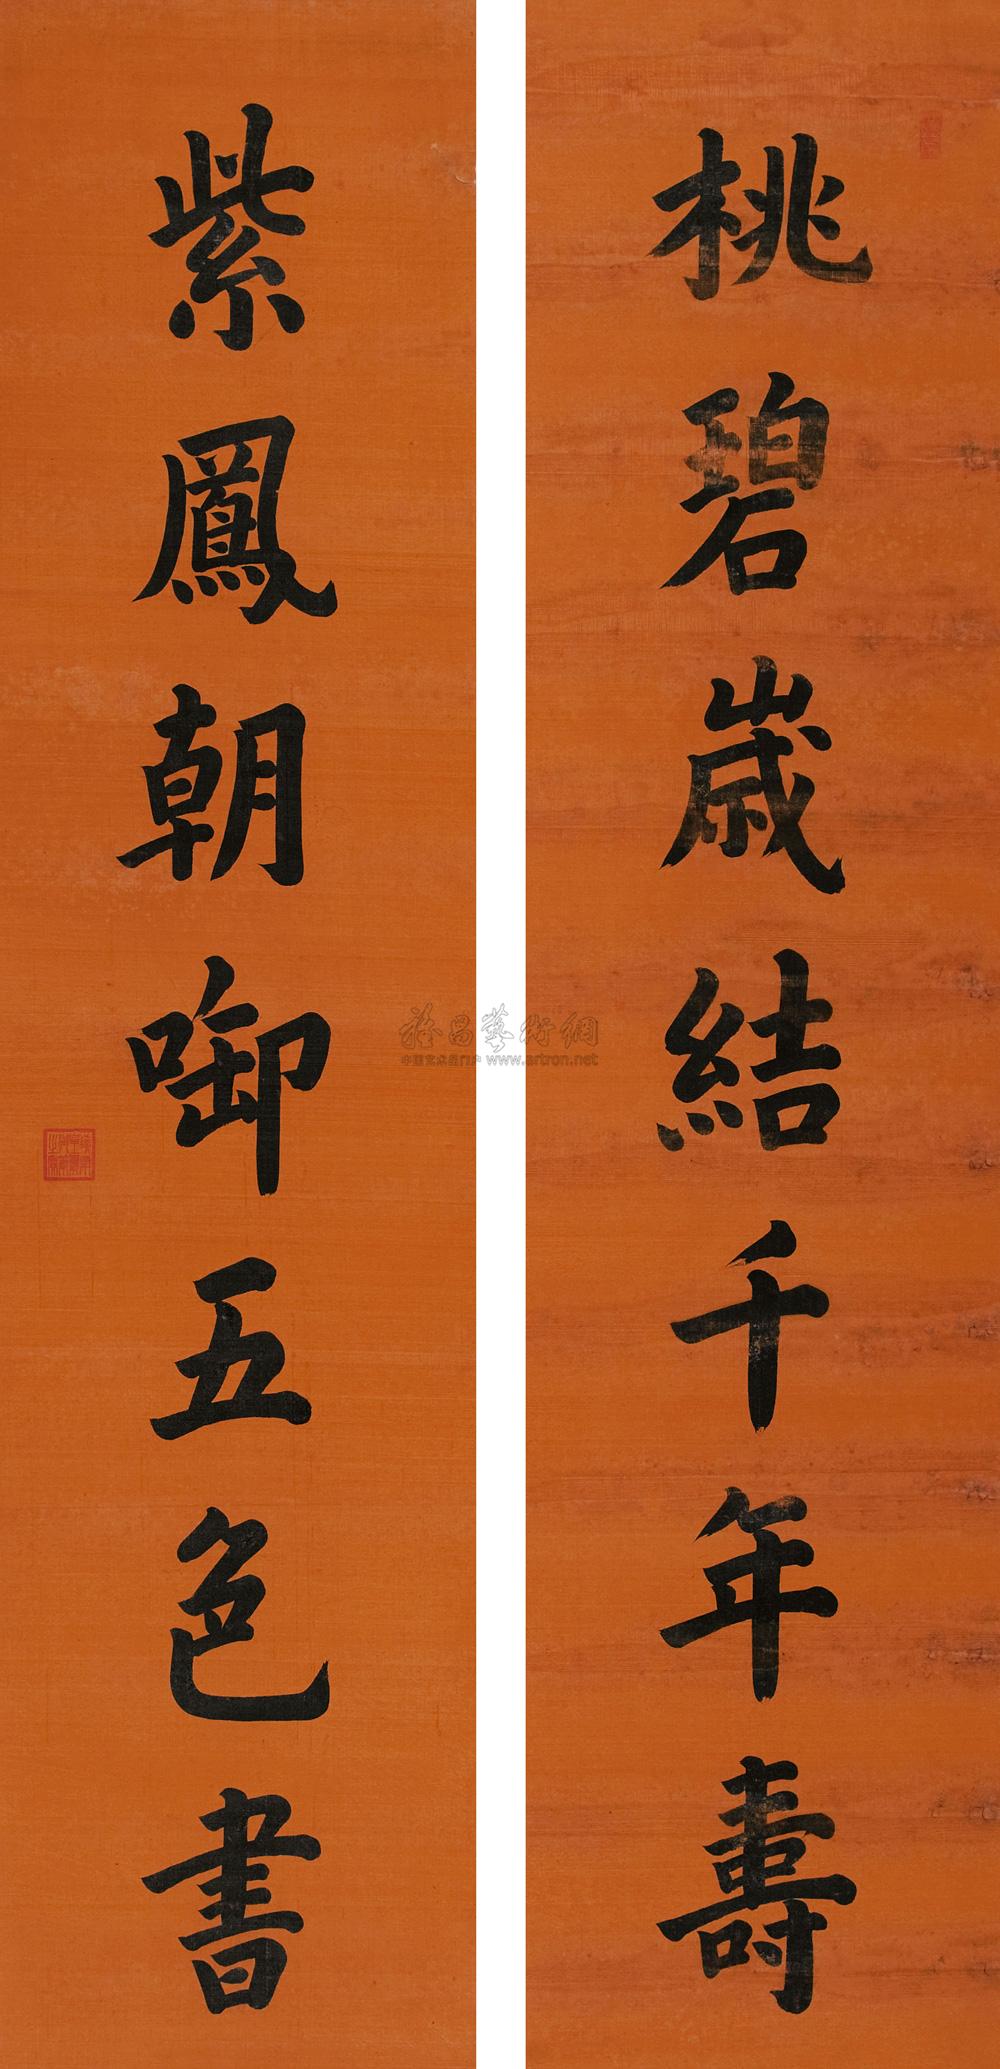 桃碧歲結千年壽
紫鳳朝啣五色書
雅昌藝術網
中国艺术品门户 www.artron.net